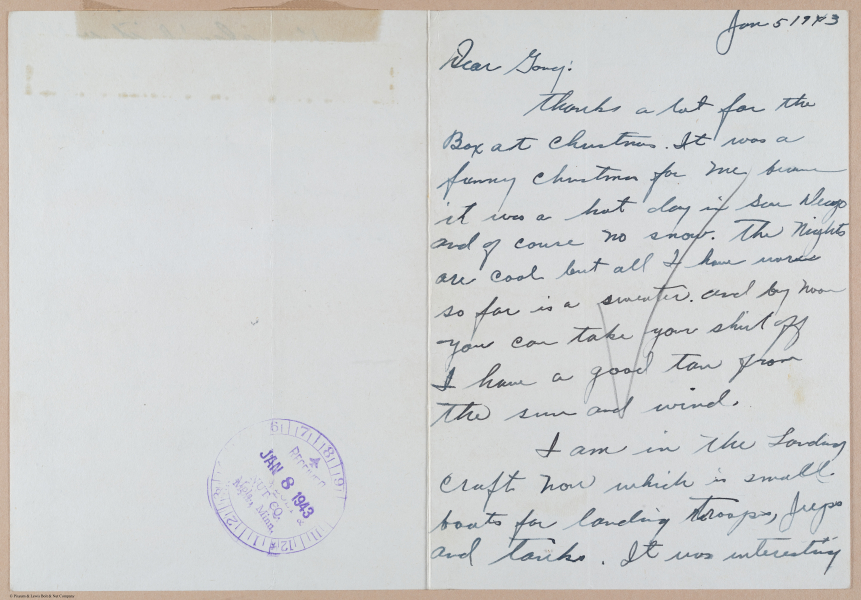 Jan 5 1943
Dear Gang:
Thanks a lot for the
Box at Christmas. It was a
funny Christmas for me, because
it was a hot day in San Diego
and of course no snow. The Nights
are cool but all I have worn
so far is a sweater. and by noon
you can take your shirt off
I have a good tan from
the sun and wind.
I am in the Landing
Craft now which is small
boats for landing troops, Jeeps
and tanks. It was interesting
6 7 8 9
RECEIVED
JAN 8 1943
NUT CO.
Mpls, Minn.
12
© Pioneer & Lewis Bolt & Nut Company